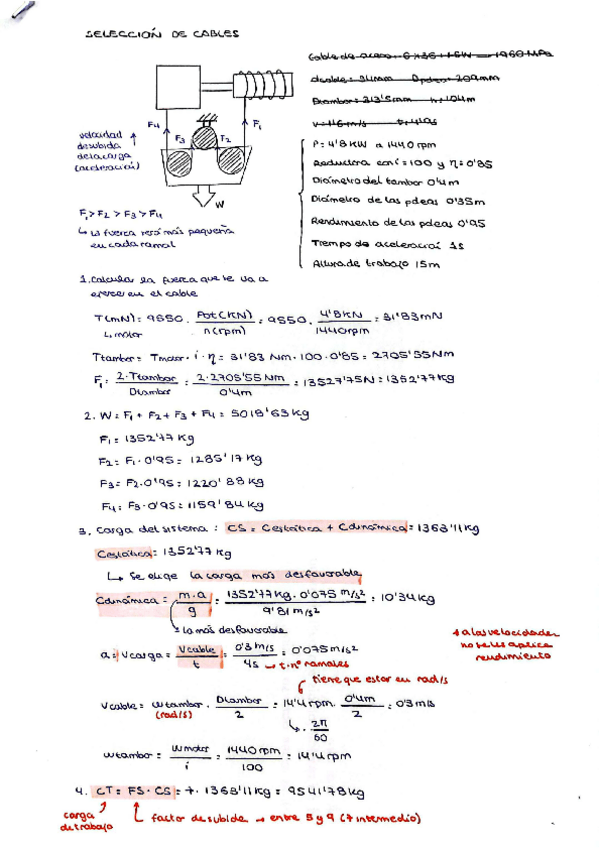 SELECCIÓN DE CABLES
Cable de acero: 6x36+1SW — 1960 MPa
dcable = 9'4mm Dpolea = 209mm
Dtambor = 313'5mm h = 104m
v = 1'6 m/s t = 4'9s
F4 F3 F2 F1
velocidad
de subida
de la carga
(aceleración)
W
P = 4'8 KW a 1440 rpm
Reductora con i = 100 y η = 0'85
Diámetro del tambor 0'4m
Diámetro de las poleas 0'35m
Rendimiento de las poleas 0'95
Tiempo de aceleración 1s
Altura de trabajo 15m
F1 > F2 > F3 > F4
↳ La fuerza será más pequeña
en cada ramal
1. Calcula la fuerza que se va a
ejercer en el cable
T(mN) = 9550 · Pot(KN) / n(rpm) = 9550 · 4'8KN / 1440rpm = 31'83mN
↳ motor
Ttambor = Tmotor · i · η = 31'83 Nm · 100 · 0'85 = 2705'55Nm
F1 = 2·Ttambor / Dtambor = 2·2705'55Nm / 0'4m = 13527'75N = 1352'77Kg
2. W = F1 + F2 + F3 + F4 = 5018'63Kg
F1 = 1352'77 Kg
F2 = F1·0'95 = 1285'17 Kg
F3 = F2·0'95 = 1220'88 Kg
F4 = F3·0'95 = 1159'84 Kg
3. Carga del sistema: CS = Cestática + Cdinámica = 1363'11Kg
Cestática = 1352'77 Kg
↳ Se elige la carga más desfavorable
Cdinámica = m·a / g = 1352'77Kg · 0'075 m/s² / 9'81 m/s² = 10'34 Kg
= la más desfavorable
a = Vcarga = Vcable / t = 0'3 m/s / 4s = 0'075 m/s²
→ t·nº ramales
* a las velocidades
no se les aplica
rendimiento
tiene que estar en rad/s
Vcable = ωtambor · Dtambor / 2 = 14'4rpm · 0'4m / 2 = 0'3 m/s
(rad/s)
↳ · 2π / 60
ωtambor = ωmotor / i = 1440rpm / 100 = 14'4 rpm
4. CT = FS · CS = 7 · 1363'11Kg = 9541'78Kg
carga
de trabajo
factor de subida → entre 5 y 9 (7 intermedio)